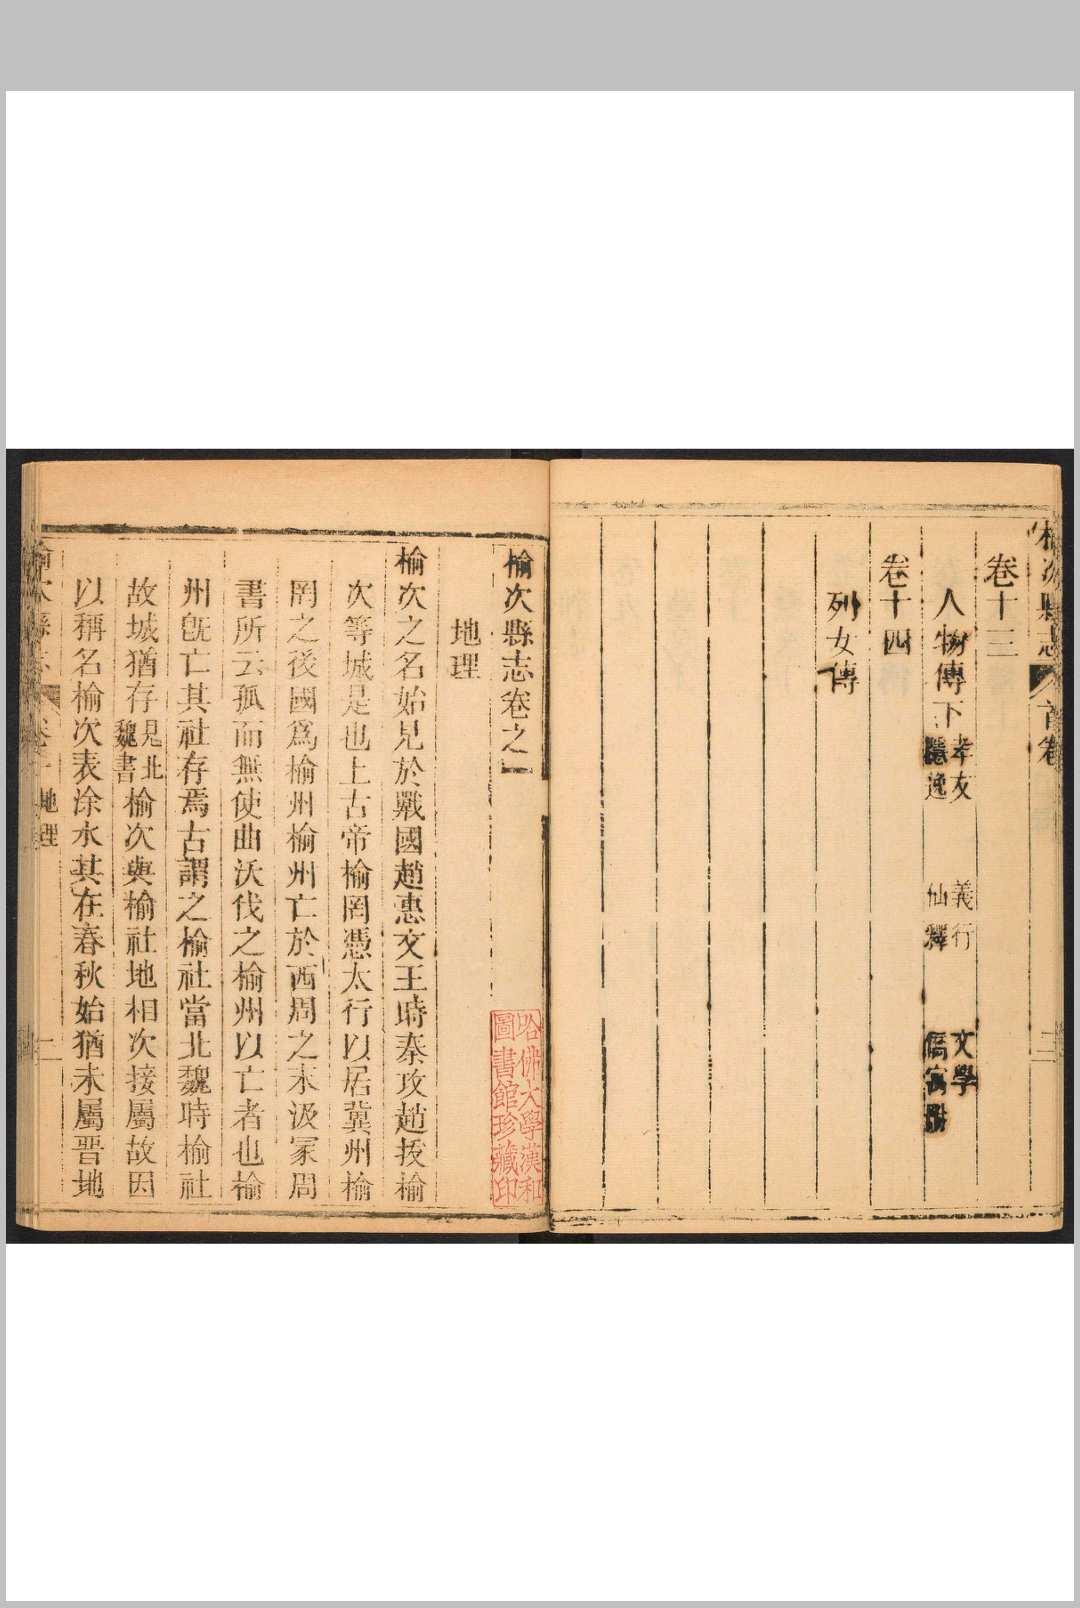 榆次縣志 首卷 二
卷十三
人物傳下 孝友 義行 文學
隱逸 仙釋 僑寓附
卷十四
列女傳
榆次縣志卷之一
地理
榆次之名始見於戰國趙惠文王時秦攻趙拔榆
次等城是也上古帝榆罔憑太行以居冀州榆
罔之後國爲榆州榆州亡於西周之末汲冢周
書所云孤而無使曲沃伐之榆州以亡者也榆
州旣亡其社存焉古謂之榆社當北魏時榆社
故城猶存見北魏書榆次與榆社地相次接屬故因
以稱名榆次表涂水其在春秋始猶未屬晋地
榆次縣志 卷一 地理 一
哈佛大學漢和
圖書館珍藏印